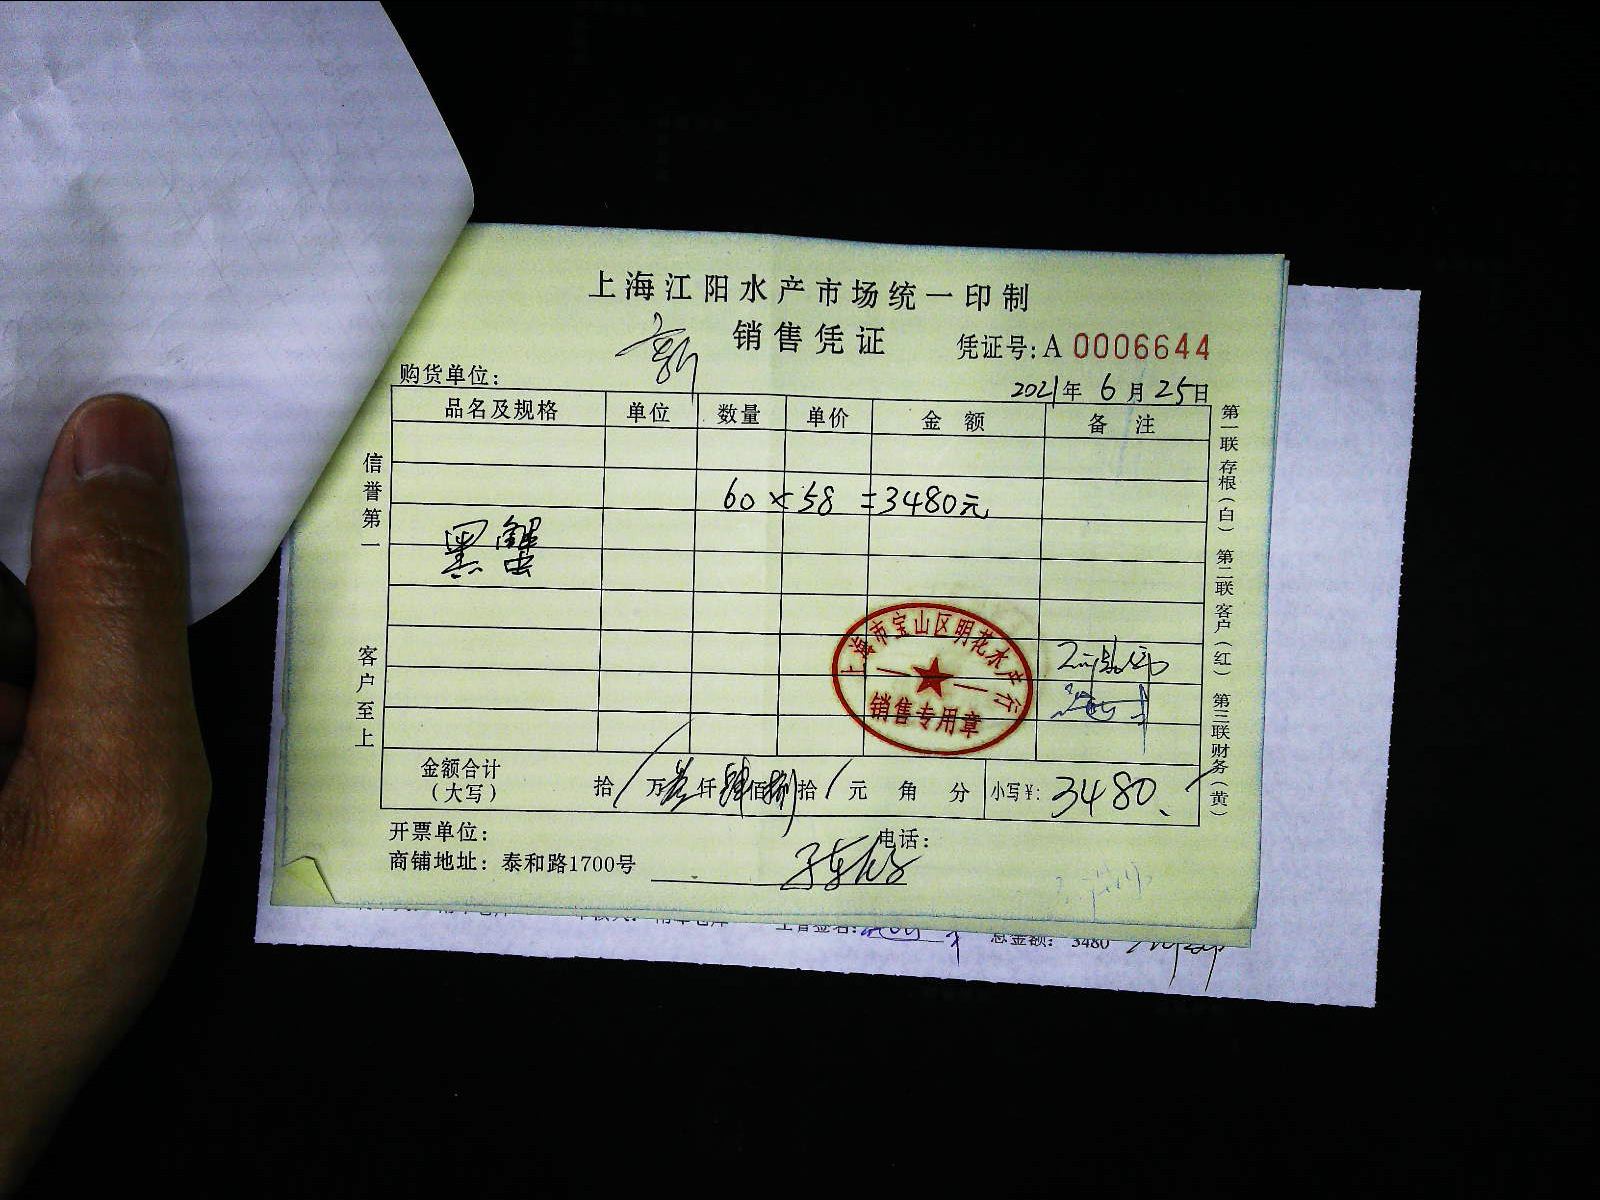 上海江阳水产市场统一印制
销售凭证
凭证号:A 0006644
购货单位:
2021年 6 月 25日
品名及规格 单位 数量 单价 金额 备注
60 × 58 = 3480元
黑蟹
信誉第一
客户至上
第一联存根(白) 第二联客户(红) 第三联财务(黄)
上海市宝山区明花水产行
销售专用章
金额合计
(大写)
拾 / 万 叁 仟 肆 佰 捌 拾 / 元 角 分 小写¥: 3480.
开票单位:
电话:
商铺地址: 泰和路1700号
总金额: 3480